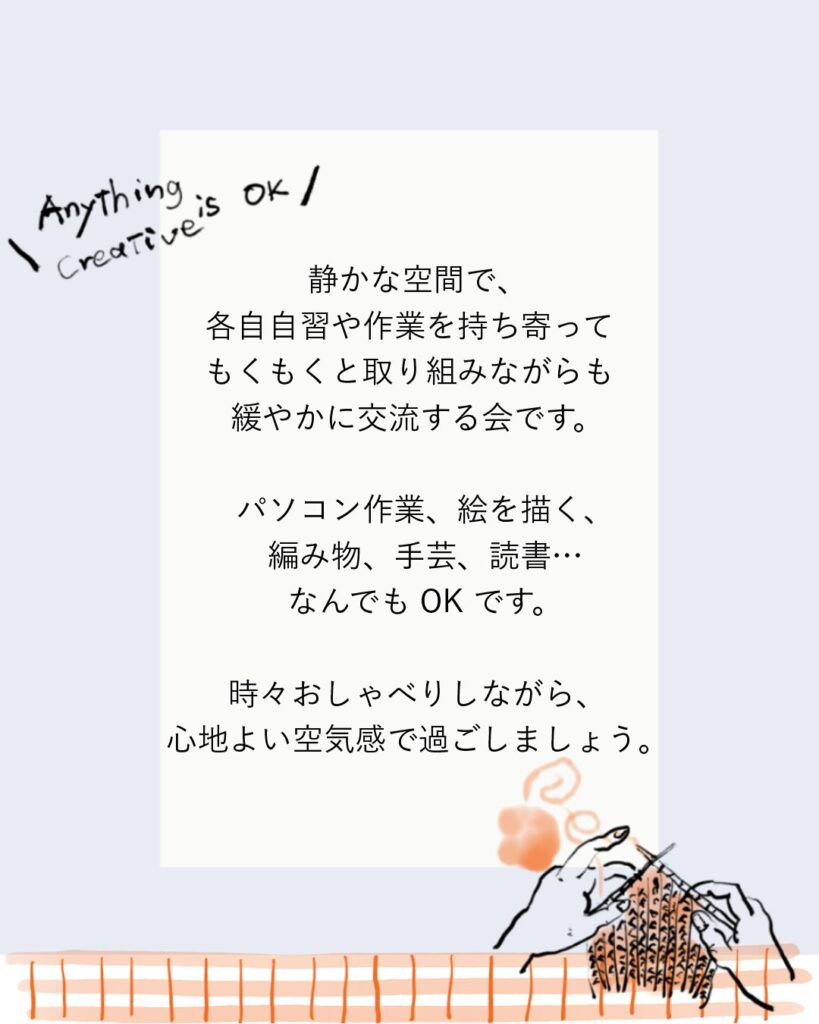 Anything
Creative is OK
静かな空間で、
各自自習や作業を持ち寄って
もくもくと取り組みながらも
緩やかに交流する会です。
パソコン作業、絵を描く、
編み物、手芸、読書…
なんでも OK です。
時々おしゃべりしながら、
心地よい空気感で過ごしましょう。